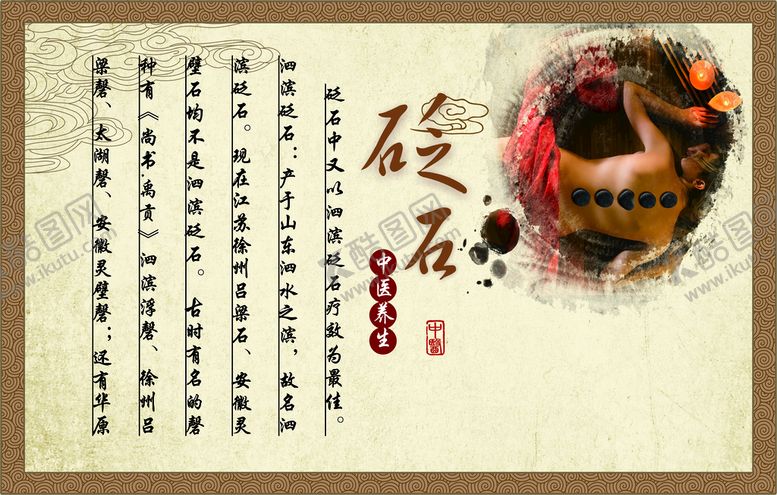 砭石
中医养生
中醫
砭石中又以泗滨砭石疗效为最佳。
泗滨砭石：产于山东泗水之滨，故名泗
滨砭石。现在江苏徐州吕梁石、安徽灵
璧石均不是泗滨砭石。古时有名的磬
种有《尚书·禹贡》泗滨浮磬、徐州吕
梁磬、太湖磬、安徽灵璧磬；还有华原
大酷图网
www.ikutu.com
大酷图网
www.ikutu.com
大酷图网
www.ikutu.com